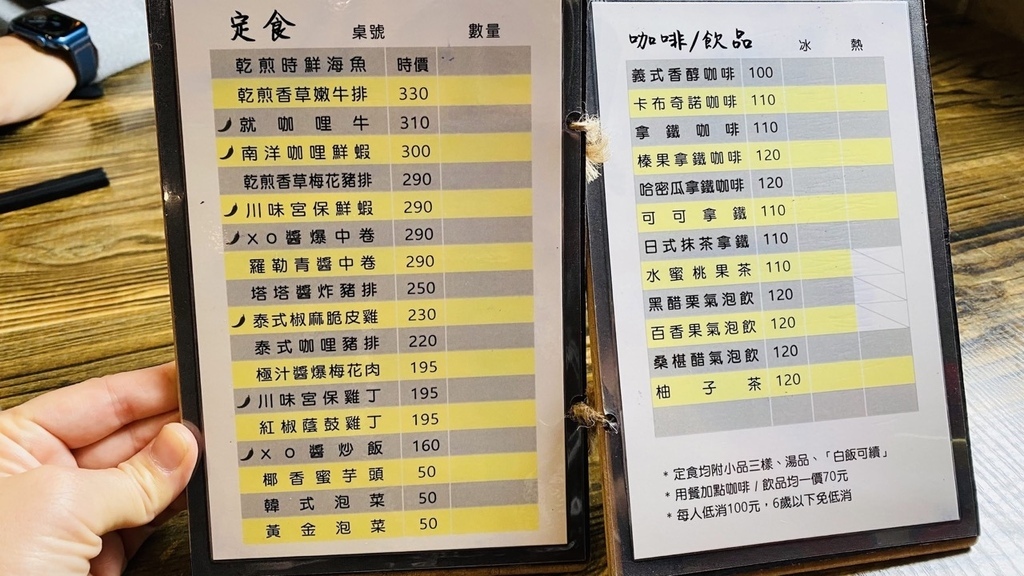 定食 桌號 數量
乾煎時鮮海魚 時價
乾煎香草嫩牛排 330
就咖哩牛 310
南洋咖哩鮮蝦 300
乾煎香草梅花豬排 290
川味宮保鮮蝦 290
XO醬爆中卷 290
羅勒青醬中卷 290
塔塔醬炸豬排 250
泰式椒麻脆皮雞 230
泰式咖哩豬排 220
極汁醬爆梅花肉 195
川味宮保雞丁 195
紅椒蔭鼓雞丁 195
XO醬炒飯 160
椰香蜜芋頭 50
韓式泡菜 50
黃金泡菜 50
咖啡/飲品 冰 熱
義式香醇咖啡 100
卡布奇諾咖啡 110
拿鐵咖啡 110
榛果拿鐵咖啡 120
哈密瓜拿鐵咖啡 120
可可拿鐵 110
日式抹茶拿鐵 110
水蜜桃果茶 110
黑醋栗氣泡飲 120
百香果氣泡飲 120
桑椹醋氣泡飲 120
柚子茶 120
* 定食均附小品三樣、湯品、「白飯可續」
* 用餐加點咖啡 / 飲品均一價70元
* 每人低消100元，6歲以下免低消